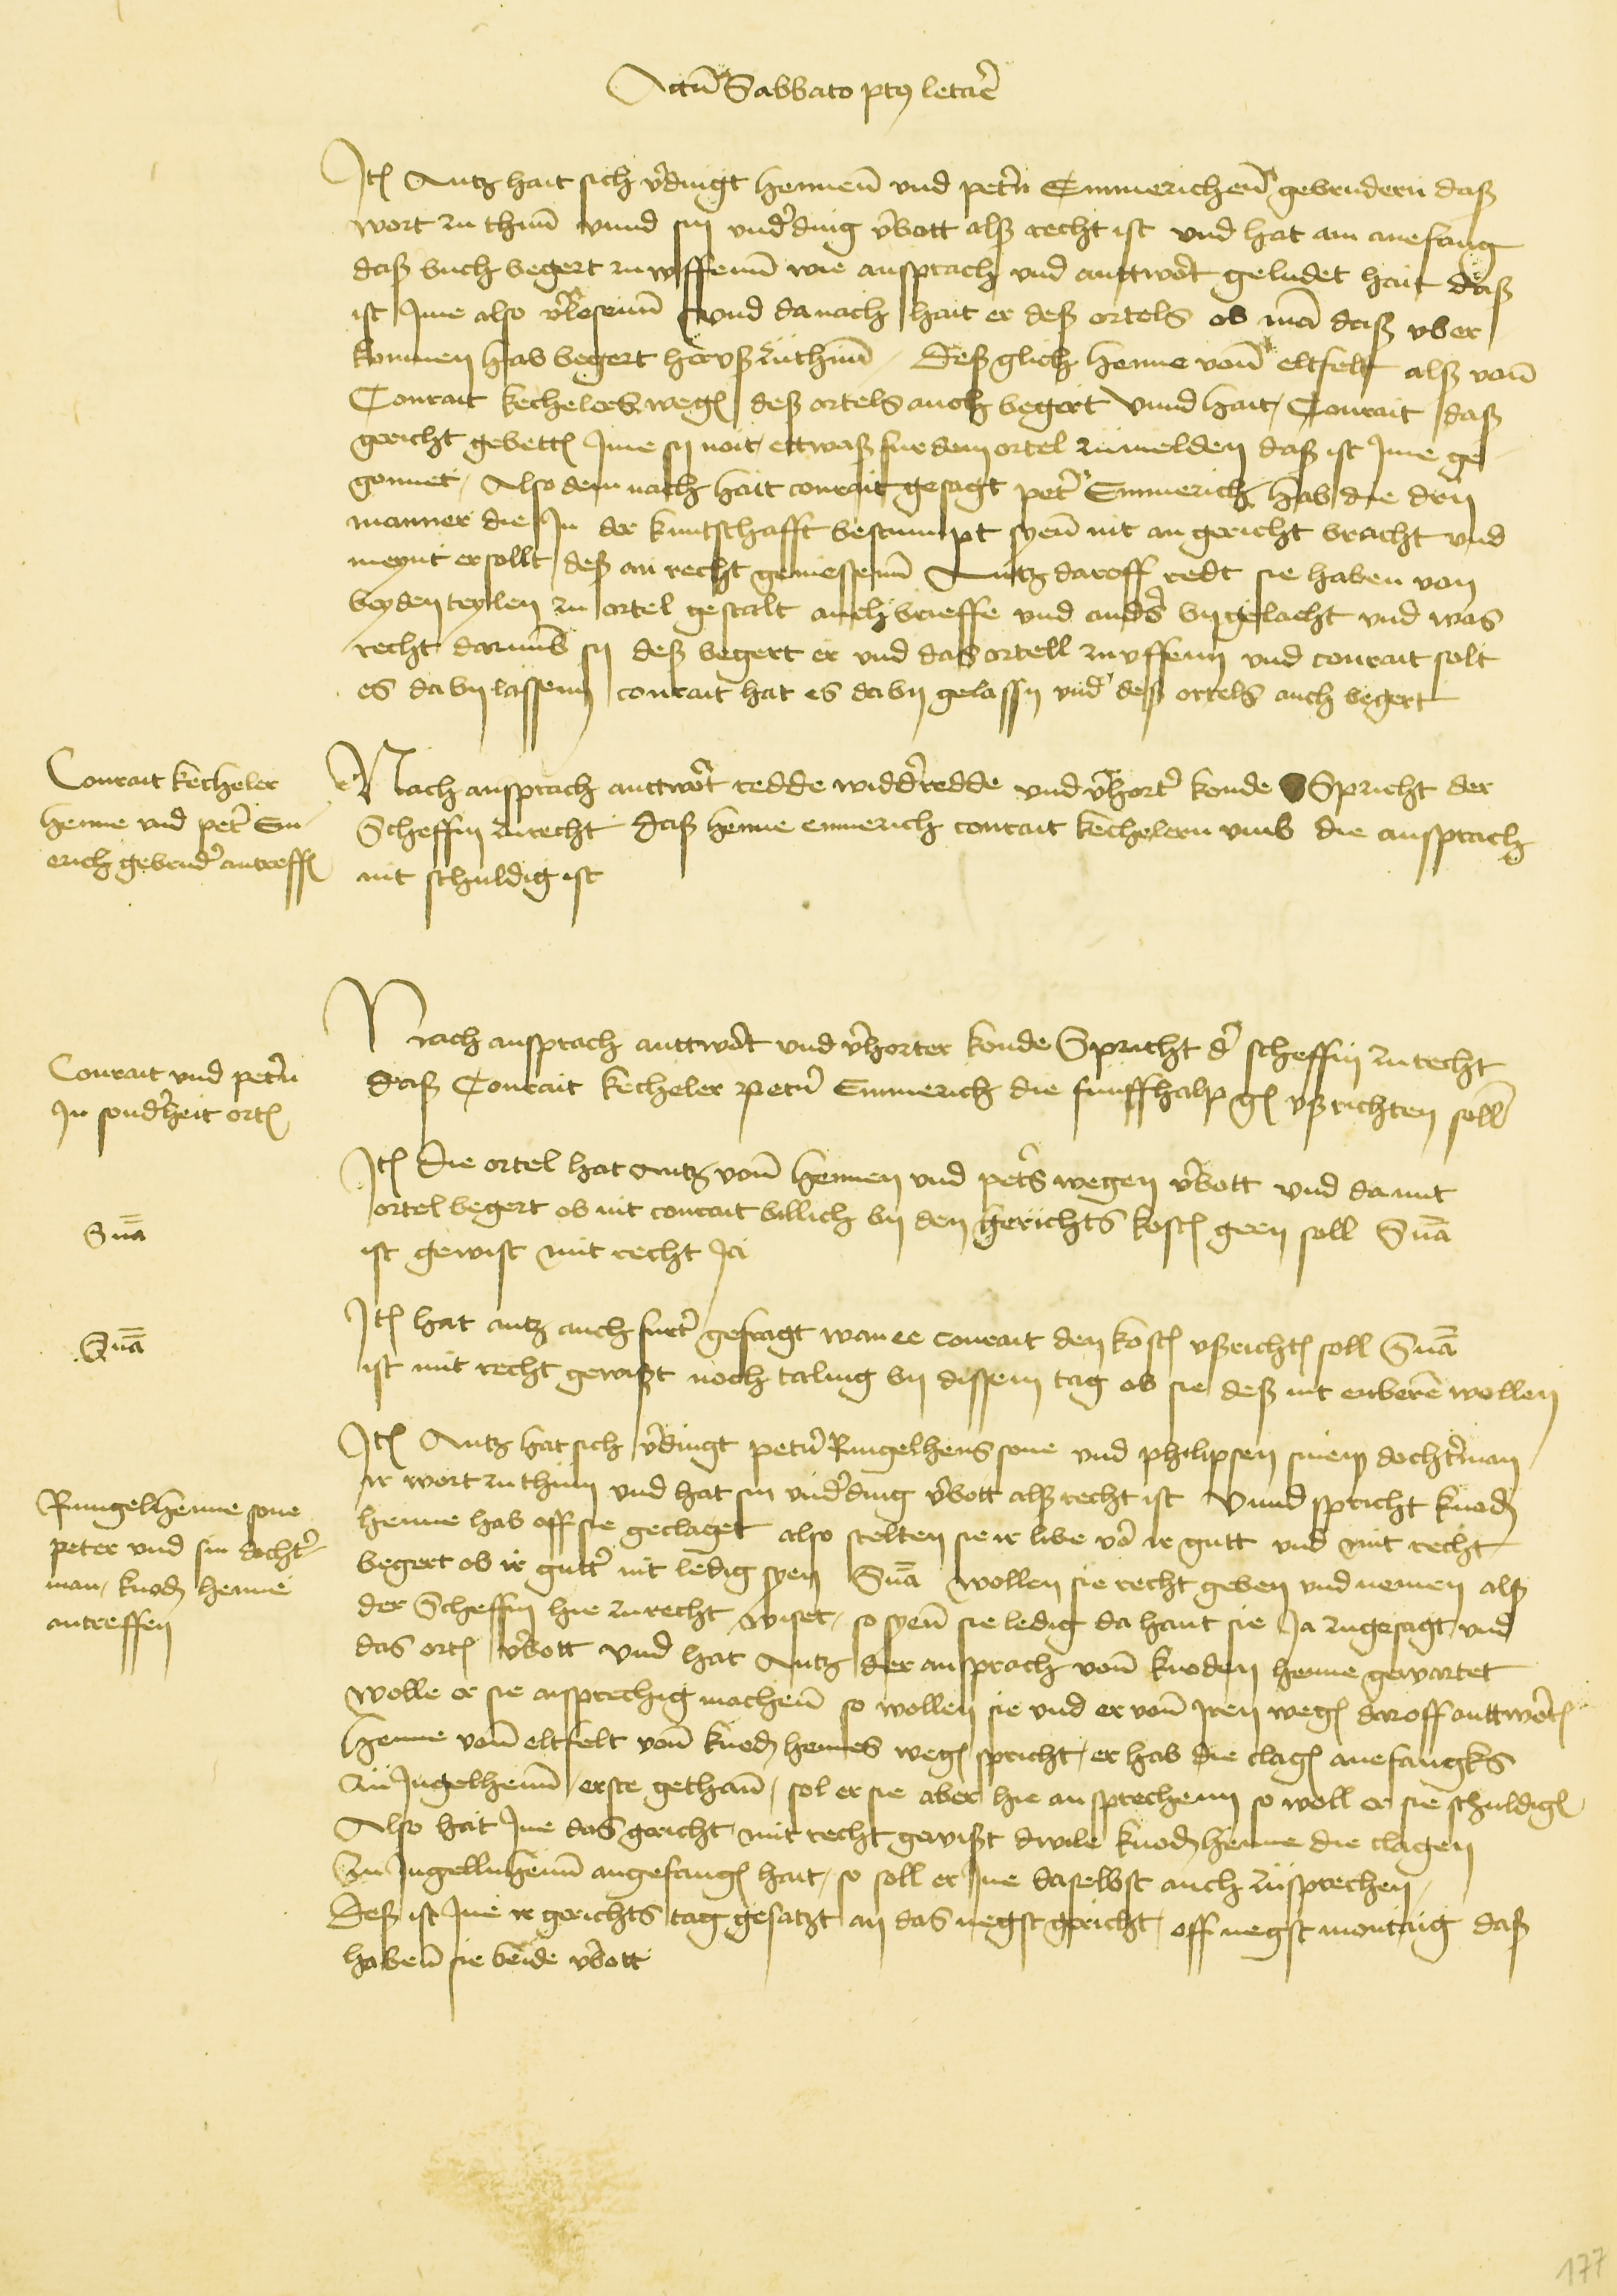 Actū Sabbato pt9 letar̄e
Itē Antz hait sich v̾dingt Hennen̄ vnd pet̾n Emmerichen̄ gebrudern daß
wort zu thun̄ vnnd sin vnd̾ding v̾bott alß recht ist vnd hat am anefang
daß buch begert zu uffenn̄ wie ansprach vnd anttw̾t geludet hait daß
ist Ime also v̾lesenn̄ vnd danach hait er deß ortels ob mā daß vber
kommen hab begert heruß zuthun̄ Deßglich Henne von̄ eltfelt alß von̄
Conrait kechelers wegē deß ortels auch begert Vnnd hait Conrait daß
gericht gebettē Ime sy noit ettwaß fur dem ortel zumelden daß ist Ime ge
gonnet Also dem nach hait conrait gesagt pet̾ Emmerich hab die dry
manner die In der kuntschafft bestimpt syen̄ nit an gericht bracht vnd
meynt er sollt deß an recht geniessenn̄ Antz daroff redt sie haben von
beyden teylen zu ortel gestalt auch brieffe vnd and̾s by gelacht vnd was
recht darumb sy deß begert er vnd das ortell zu uffenn vnd conrait solt
es da by lassenn conrait hat es daby gelassn vnd deß ortels auch begert
Conrait kecheler
Henne vnd pet̾ Em
erich gebrud̾ antreffē
Nach ansprach anttw̾t redde widd̾redde vnd v̾hort̾ konde Spricht der
Scheffin zurecht daß Henne emerich conrait kechelern vmb die ansprach
nit schuldig ist
Conrait vnd pet̾n
In sond̾heit ortē
Nach ansprach anttw̾t vnd v̾horter konde Spricht d̾ scheffin zu recht
daß Conrait kecheler petn̄ Emmerich die funffhalp gē vßrichten soll
Itē die ortel hat Antz von̄ Hennen vnd pet̾s wegen v̾bott vnd da mit
ortel begert ob nit conrait billich by den gerichts kostē geen soll Sn̄ā
ist gewist mit recht Ja
Sn̄ā
Itē hat antz auch furt̾ gefragt wan ee conrait den kostē vßrichtē soll Sn̄ā
ist mit recht gewißt noch taling by dissem tag ob sie deß nit enberē wollen
Sn̄ā
Itē Antz hat sich v̾dingt petn̄ Ringelhens sone vnd philipsen sinem docht̾man
ir wort zu thun vnd hat sin vnd̾ding v̾bott alß recht ist Vnnd spricht knodē
Henne hab off sie geclaget also stelten sie ir libe v̾o ir gutt vnd mit recht
begert ob ir gutt̾ nit ledig syen Sn̄ā wollen sie recht geben vnd nemen alß
der Scheffin hie zurecht wiset so syen̄ sie ledig da hant sie Ja zugesagt vnd
das ortē v̾bott vnd hat Antz der ansprach von̄ knoden Henne gewartet
wolle er sie ansprechig machen̄ so wollen sie vnd er von̄ Iren wegē daroff anttw̾tē
Henne von̄ eltfelt von̄ knodē Hennes wegē spricht er hab die clagē anefangks
zu Ingelhenn̄ erste gethan̄ sol er sie aber hie ansprechenn so woll er sie schuldigē
Also hait Ime das gericht mit recht gewißt dwile knodē Henne die clagen
zu Ingelluhenn̄ angefangē hait so soll er Ine daselbst auch zusprechen
Deß ist Ine ir gerichts tag gesatzt an das negst gericht off negst montaig daß
haben̄ sie beide v̾bott
Ringelhenne sone
peter vnd sin docht̾
man knodē Henne
antreffen
177